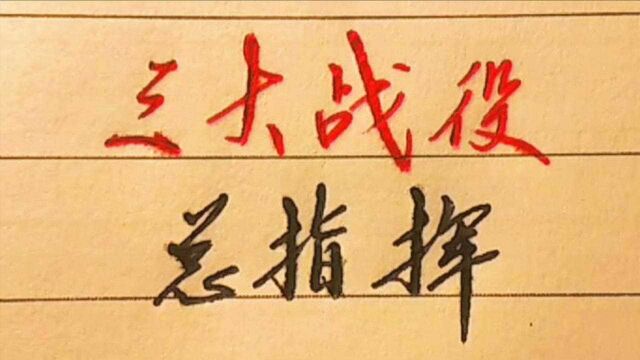 三大战役
总指挥